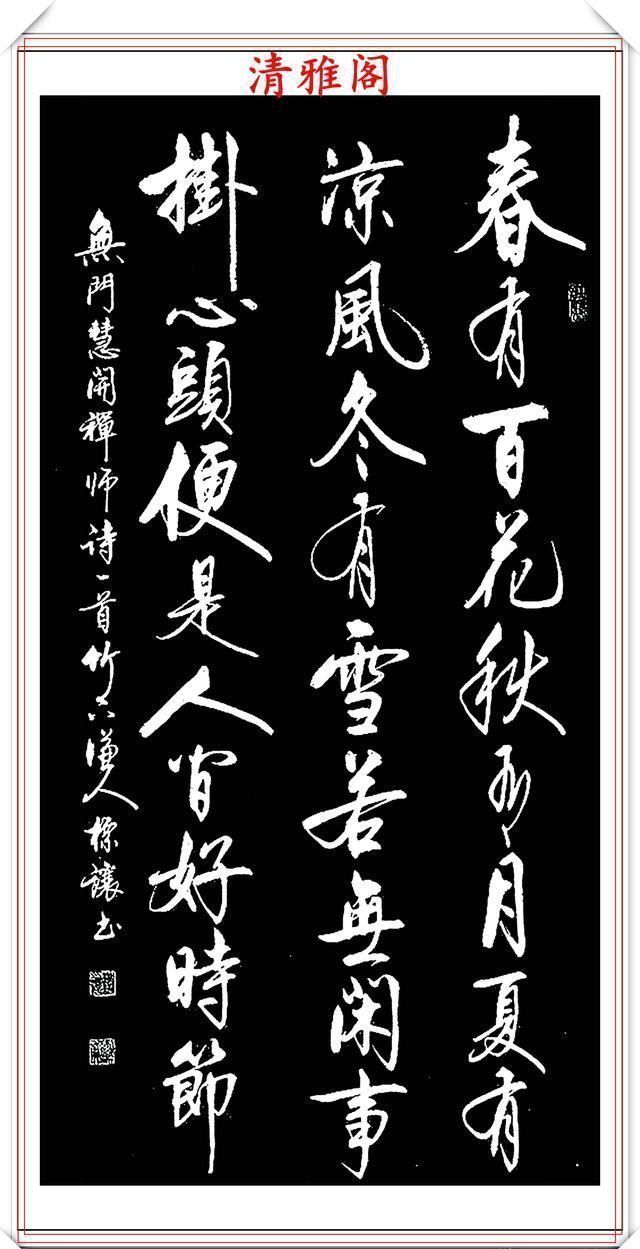 清雅阁
春有百花秋有月夏有
涼風冬有雪若無閑事
掛心頭便是人间好時節
無門慧開禪师诗一首竹六謙人標讓书